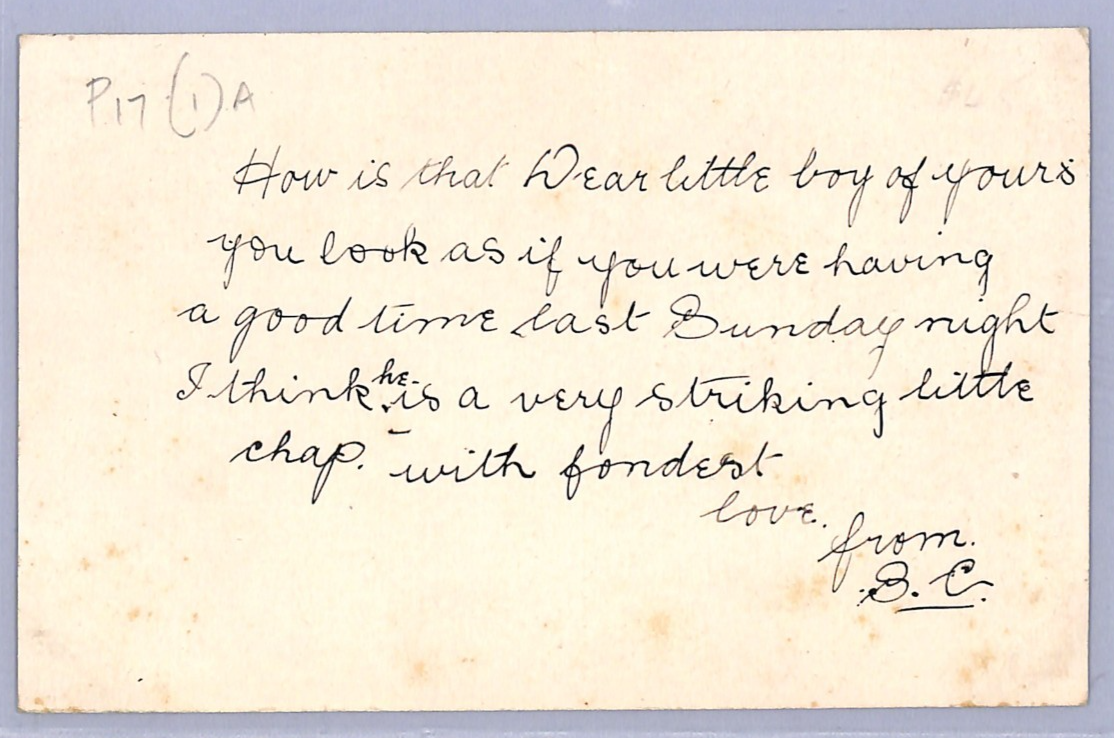 P17 (1) A
How is that Dear little boy of yours
you look as if you were having
a good time last Sunday night
I think he is a very striking little
chap. - with fondest
love.
from.
B. C.